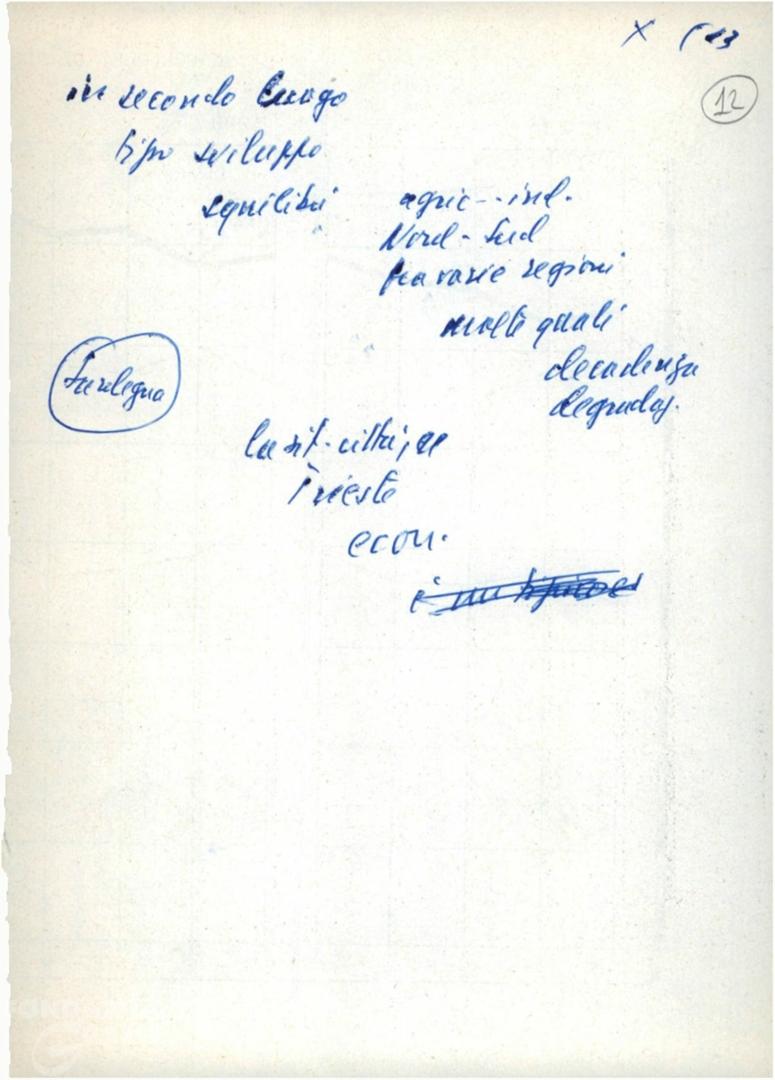 X
12
in secondo luogo
tipo sviluppo
squilibri
agric - ind.
Nord - Sud
fra varie regioni
molte quali
decadenza
degradaz.
Sardegna
la sit. città
Trieste
econ.